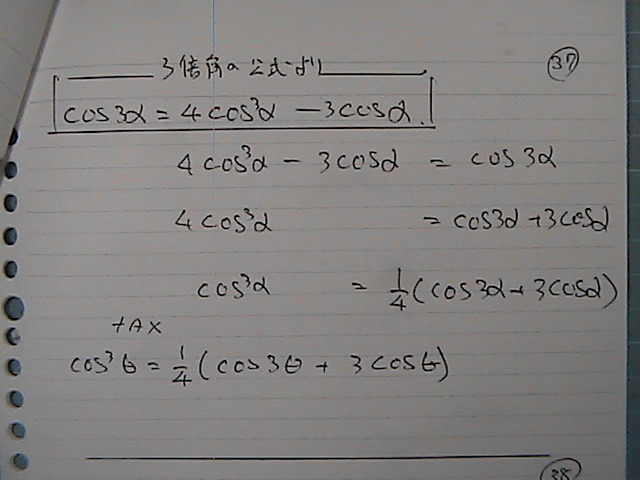 3倍角の公式より
㊲
cos3α = 4cos³α − 3cosα.
4cos³α − 3cosα = cos3α
4cos³α = cos3α + 3cosα
cos³α = 1/4 (cos3α + 3cosα)
cos³θ = 1/4 (cos3θ + 3cosθ)
㊳